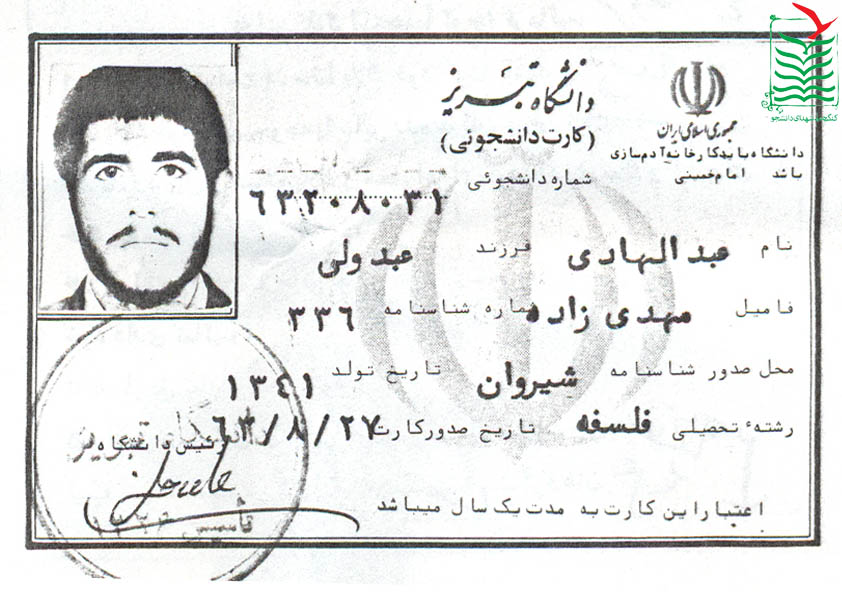 کنگره شهدای دانشجو
جمهوری اسلامی ایران
دانشگاه باید کارخانه آدم‌سازی
باشد امام خمینی
دانشگاه تبریز
(کارت دانشجوئی)
شماره دانشجوئی ۶۳۲۰۸۰۳۱
نام عبدالهادی فرزند عبدولی
فامیل مهدی زاده شماره شناسنامه ۳۳۶
محل صدور شناسنامه شیروان تاریخ تولد ۱۳۴۱
رشتهٔ تحصیلی فلسفه تاریخ صدور کارت ۶۳/۸/۲۷
رئیس دانشگاه
اعتبار این کارت به مدت یک سال میباشد
تأسیس